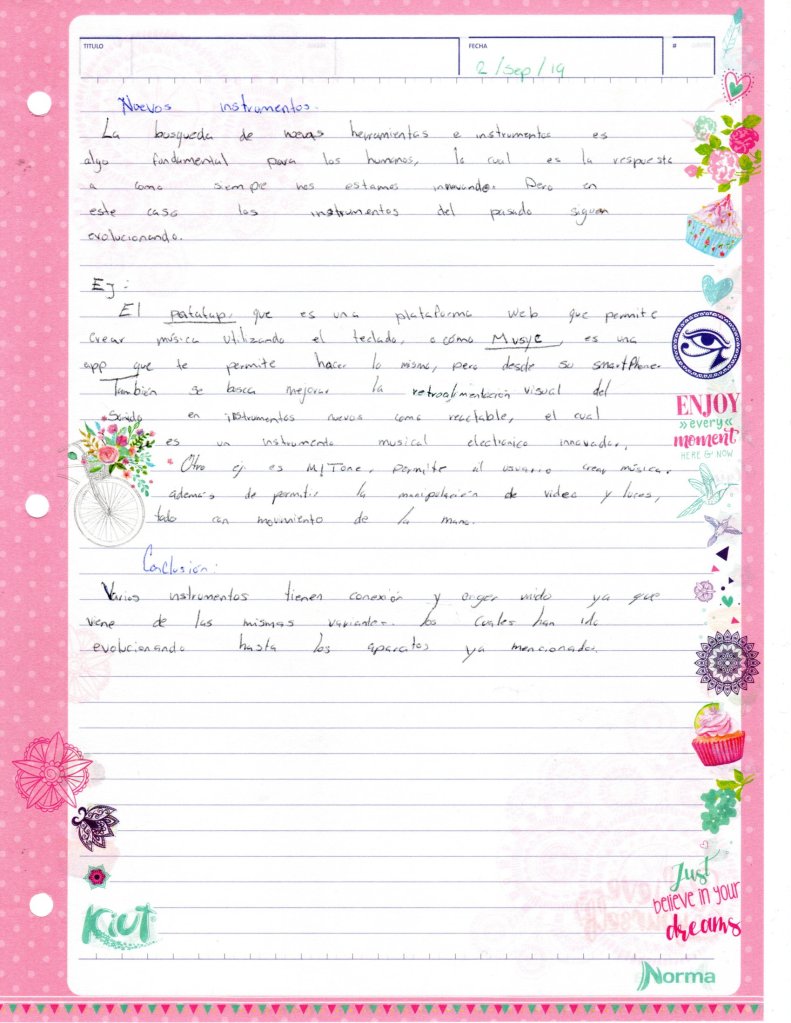 TITULO
FECHA
#
2/Sep/19
Nuevos instrumentos.
La busqueda de nuevas herramientas e instrumentos es
algo fundamental para los humanos, lo cual es la respuesta
a como siempre nos estamos innovando. Pero en
este caso los instrumentos del pasado siguen
evolucionando.
Ej:
El patatap, que es una plataforma web que permite
crear música utilizando el teclado, o cómo Musyc, es una
app que te permite hacer lo mismo, pero desde su smartPhone.
También se busca mejorar la retroalimentación visual del
sonido en instrumentos nuevos como reactable, el cual
es un instrumento musical electronico innovador.
Otro ej. es MiTone, permite al usuario crear música,
además de permitir la manipulación de video y luces,
todo con movimiento de la mano.
Conclusión:
Varios instrumentos tienen conexión y origen unido ya que
viene de las mismas variantes. los cuales han ido
evolucionando hasta los aparatos ya mencionados.
ENJOY
»every«
moment
HERE & NOW
Just
believe in your
dreams
Kiut
Norma